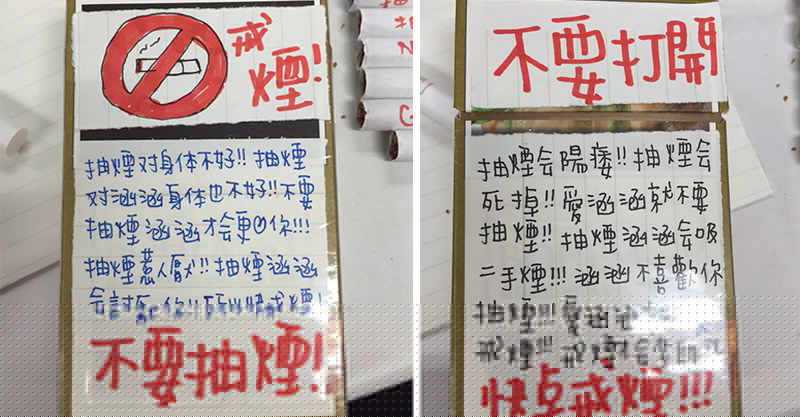 戒
煙!
抽煙对身体不好!! 抽煙
对涵涵身体也不好!! 不要
抽煙 涵涵才会更你!!!
抽煙惹人厭!! 抽煙涵涵
会討厭你!! 所以快戒煙!
不要抽煙!
不要打開
抽煙会陽痿!! 抽煙会
死掉!! 愛涵涵就不要
抽煙!! 抽煙涵涵会吸
二手煙!!! 涵涵不喜歡你
抽煙!!! 愛
戒煙!!! 戒煙
快点戒煙!!!